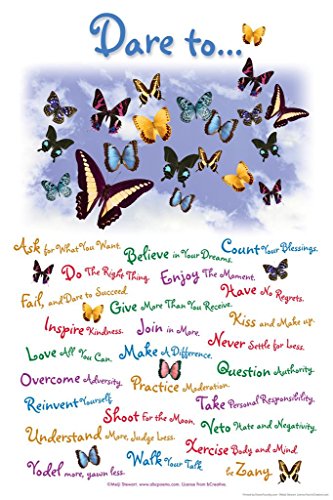 Dare to...
Ask for What You Want.
Believe in Your Dreams.
Count Your Blessings.
Do The Right Thing.
Enjoy The Moment.
Fail, and Dare to Succeed.
Give More Than You Receive.
Have No Regrets.
Inspire Kindness.
Join in More.
Kiss and Make up.
Love All You Can.
Make A Difference.
Never Settle for Less.
Overcome Adversity.
Practice Moderation.
Question Authority.
Reinvent Yourself.
Shoot For the Moon.
Take Personal Responsibility.
Understand More, Judge Less.
Veto Hate and Negativity.
Walk Your Talk.
Xercise Body and Mind.
Yodel more, yawn less.
be Zany.
©Meiji Stewart www.abcpoems.com License from bCreative